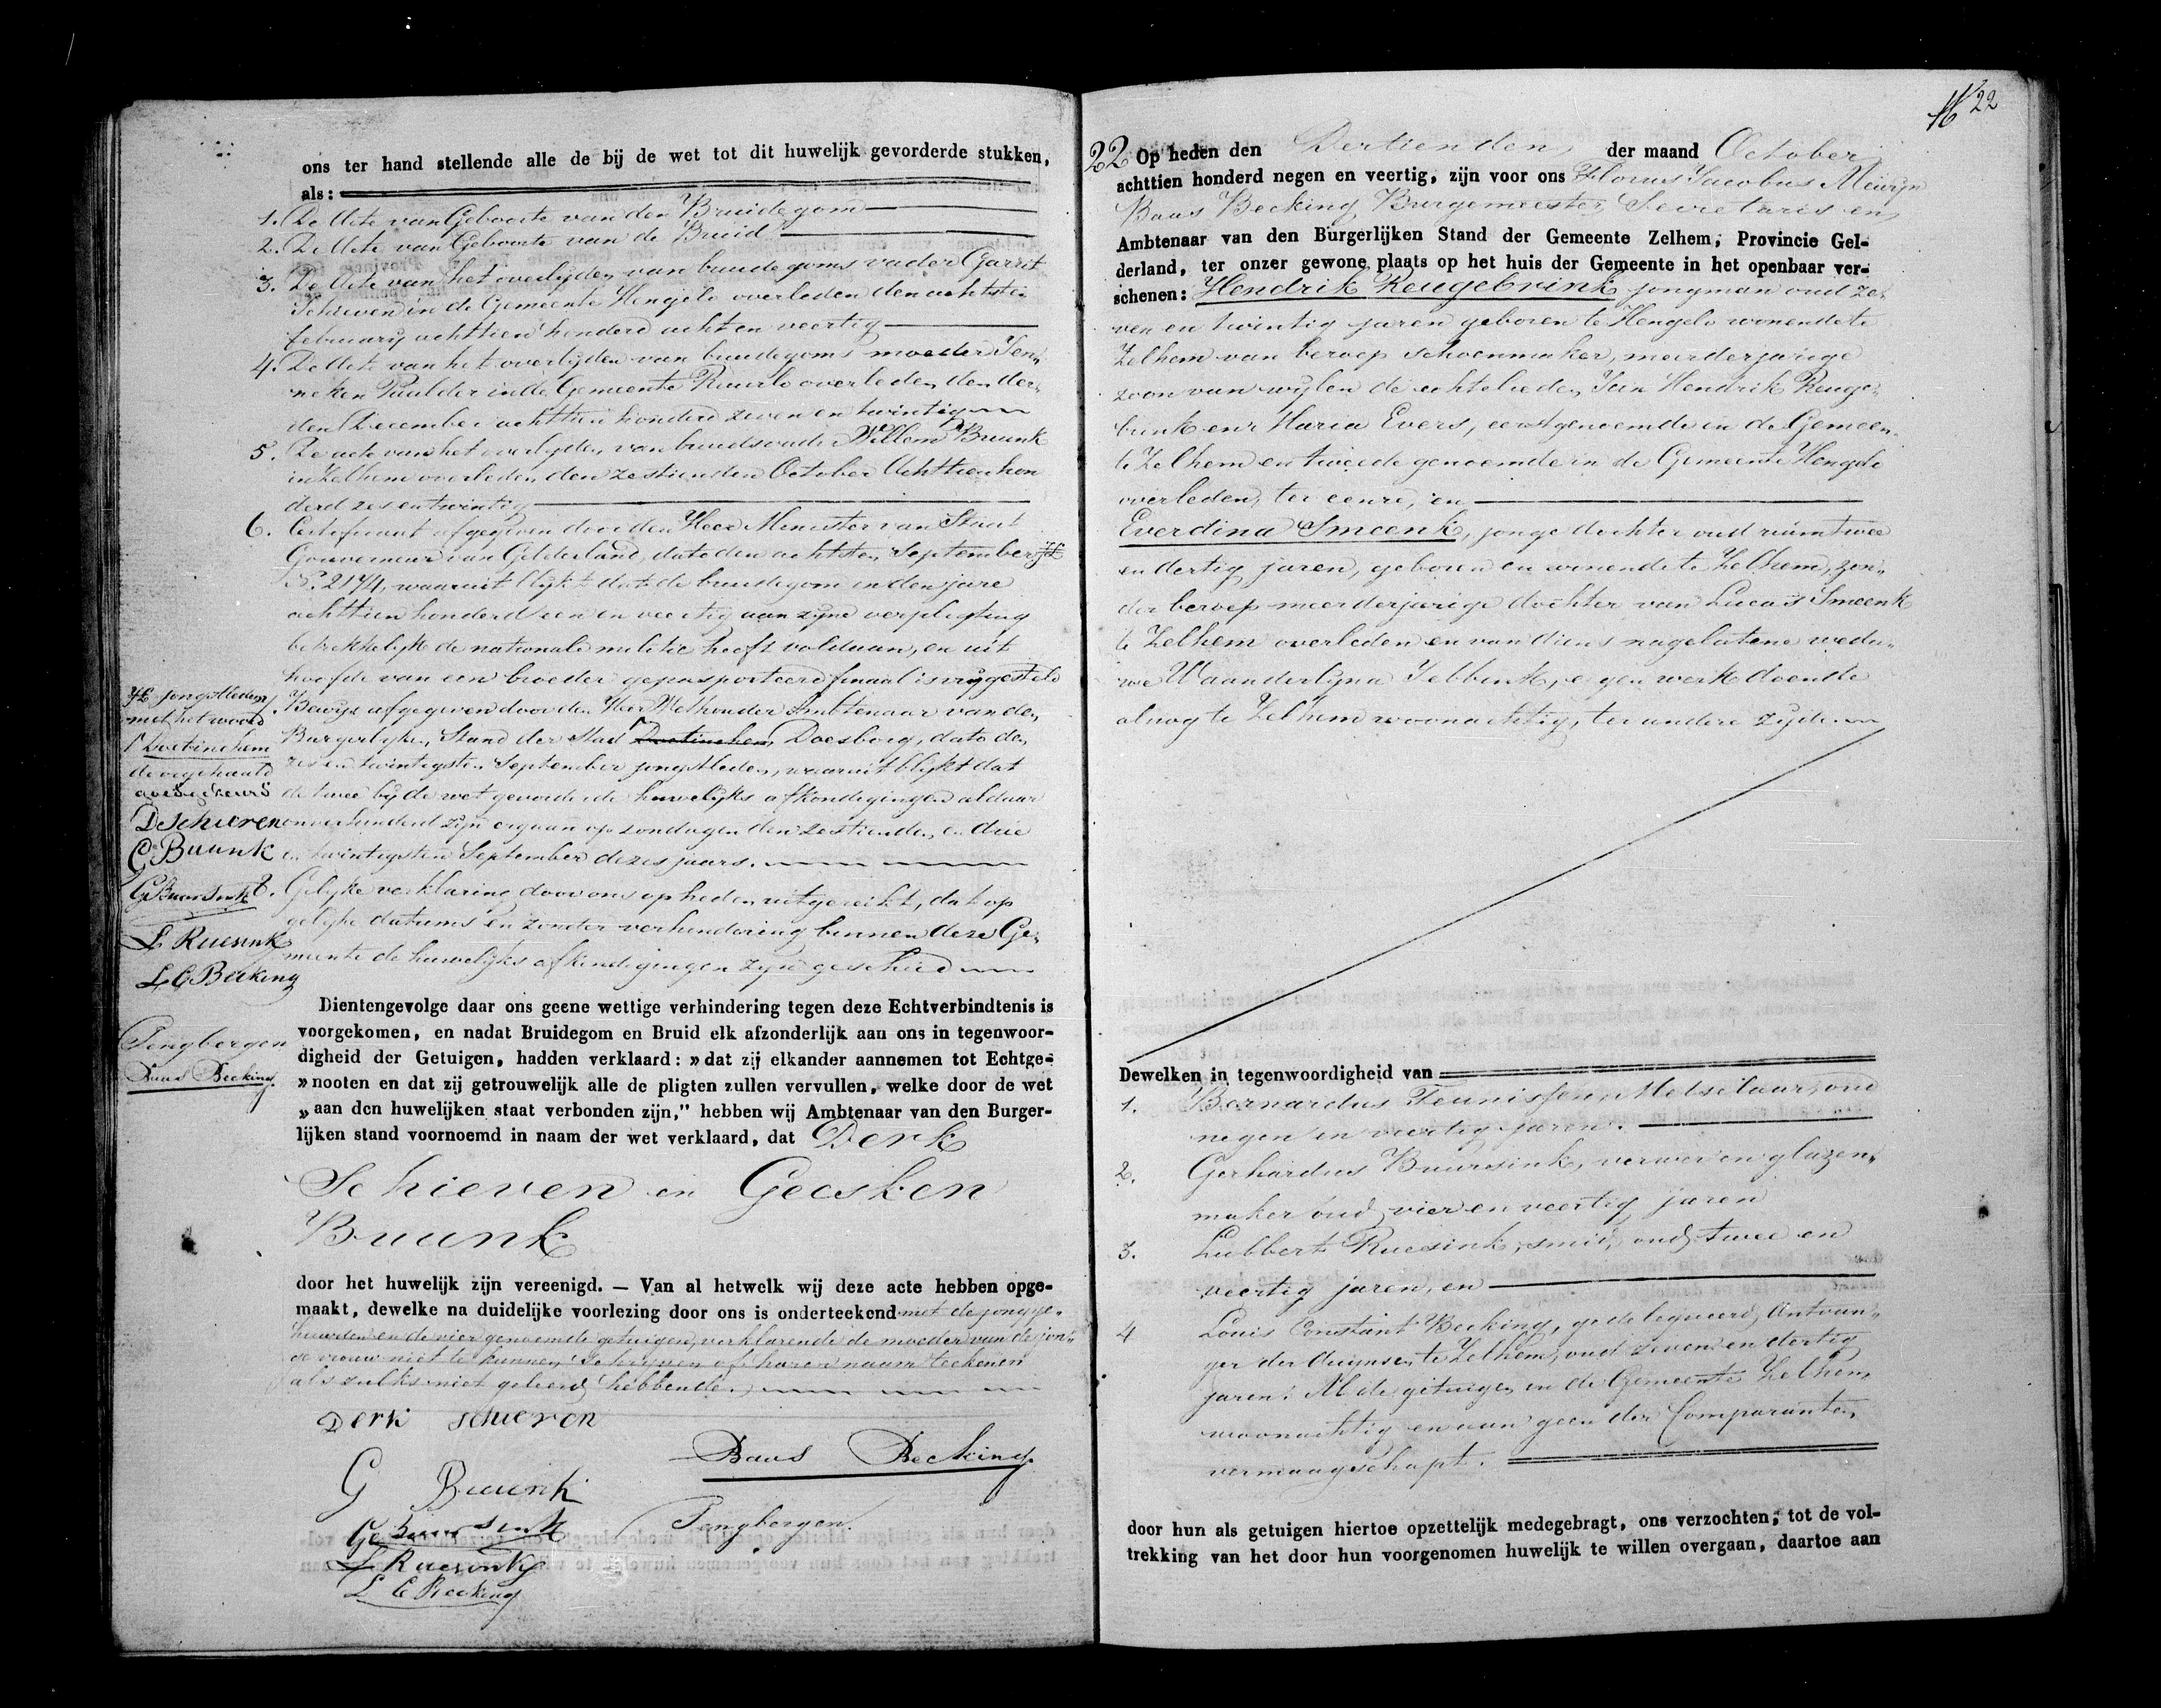 ons ter hand stellende alle de bij de wet tot dit huwelijk gevorderde stukken,
als:
1. De Acte van Geboorte van den Bruidegom
2. De Acte van Geboorte van de Bruid
3. De Acte van het overlijden van bruidegoms vader Garrit
Schieven in de Gemeente Hengelo overleden den achtsten
february achttien honderd acht en veertig
4. De Acte van het overlijden van bruidegoms moeder Jen„
neken Paulder in de Gemeente Ruurlo overleden den der„
den December achttien honderd zeven en twintig
5. De acte van het overlijden van bruids vader Willem Buunk
in Zelhem overleden den zestienden October Achttien hon
derd zes en twintig
6. Certificaat afgegeven door den Heer Minister van Staat
Gouverneur van Gelderland, dato den achtsten September
N°. 2174, waaruit blykt dat de bruidegom in den jare
achttien honderd een en veertig aan zyne verpligting
betrekkelyk de nationale militie heeft voldaan, en uit
hoofde van een broeder gepasporteerd finaal is vrygesteld
7. Bewys afgegeven door den Heer Wethouder Ambtenaar van den
Burgerlyken Stand der Stad Doetinchem Doesborg, dato den
zes en twintigsten September jongstleden, waaruit blykt dat
de twee by de wet gevorderde huwelyks afkondigingen aldaar
onverhinderd zyn ergaan op zondagen den zestienden en drie
en twintigsten September dezes jaars.
8. Gelyke verklaring door ons op heden uitgereikt, dat op
gelyke datums en zonder verhindering binnen deze Ge„
meente de huwelyks afkondigingen zyn geschied
jongstleden
met het woord
Doetinchem
doorgehaald
goedgekeurd
D Schieven
G Buunk
G Buursink
L Ruesink
L C Becking
Tengbergen
Baus Becking
Dientengevolge daar ons geene wettige verhindering tegen deze Echtverbindtenis is
voorgekomen, en nadat Bruidegom en Bruid elk afzonderlijk aan ons in tegenwoor-
digheid der Getuigen, hadden verklaard: » dat zij elkander aannemen tot Echtge-
» nooten en dat zij getrouwelijk alle de pligten zullen vervullen, welke door de wet
„ aan den huwelijken staat verbonden zijn," hebben wij Ambtenaar van den Burger-
lijken stand voornoemd in naam der wet verklaard, dat Derk
Schieven en Geesken
Buunk
door het huwelijk zijn vereenigd. — Van al hetwelk wij deze acte hebben opge-
maakt, dewelke na duidelijke voorlezing door ons is onderteekend met de jong ge„
huwden en de vier genoemde getuigen, verklarende de moeder van de jon„
ge vrouw niet te kunnen schryven of haren naam teekenen
als zulks niet geleerd hebbende.
Derk Schieven
Baus Becking
G Buunk
G Buursink
Tengbergen.
L Ruesink
L C Becking
16 22
22 Op heden den Dertienden der maand October
achttien honderd negen en veertig, zijn voor ons Florus Jacobus Meuryn
Baus Becking Burgemeester Secretaris en
Ambtenaar van den Burgerlijken Stand der Gemeente Zelhem, Provincie Gel-
derland, ter onzer gewone plaats op het huis der Gemeente in het openbaar ver-
schenen: Hendrik Reugebrink jongman oud ze„
ven en twintig jaren geboren te Hengelo wonende te
Zelhem van beroep schoenmaker, meerderjarige
zoon van wylen de echtelieden Jan Hendrik Reuge„
brink en Maria Evers, eerstgenoemde in de Gemeen„
te Zelhem en tweede genoemde in de Gemeente Hengelo
overleden, ter eenre, en
Everdina Smeenk, jonge dochter oud ruim twee
en dertig jaren, geboren en wonende te Zelhem, zon„
der beroep meerderjarige dochter van Lucas Smeenk
te Zelhem overleden en van diens nagelatene wedu„
we Waanderlyna Jebbink, eigen werk doende
alnog te Zelhem woonachtig, ter andere zyde.
Dewelken in tegenwoordigheid van
1. Bernardus Teunissen, Metselaar, oud
negen en veertig jaren.
2. Gerhardus Buursink, verwer en glazen„
maker oud vier en veertig jaren
3. Lubbert Ruesink, smid, oud twee en
veertig jaren, en
4 Louis Constant Becking, gedelegueerd Ontvan„
ger der accynsen te Zelhem, oud zeven en dertig
jaren. Al de getuigen in de Gemeente Zelhem
woonachtig en aan geen der Comparanten
vermaagschapt.
door hun als getuigen hiertoe opzettelijk medegebragt, ons verzochten, tot de vol-
trekking van het door hun voorgenomen huwelijk te willen overgaan, daartoe aan